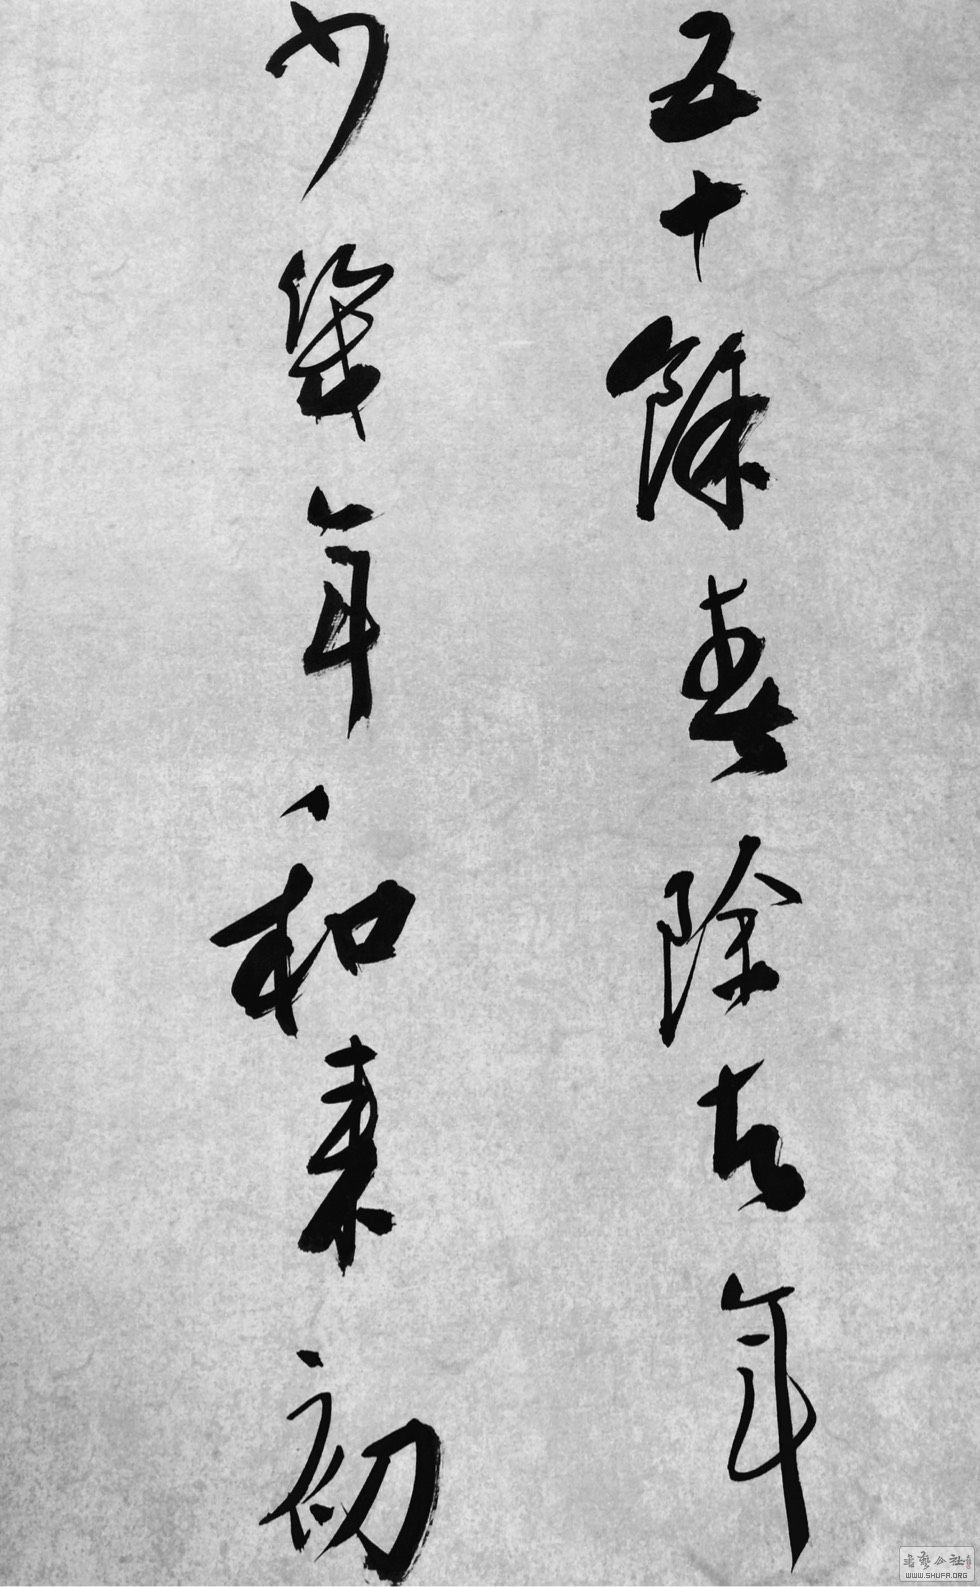 五十餘春除去年
少幾年和初
書藝公社
WWW.SHUFA.ORG